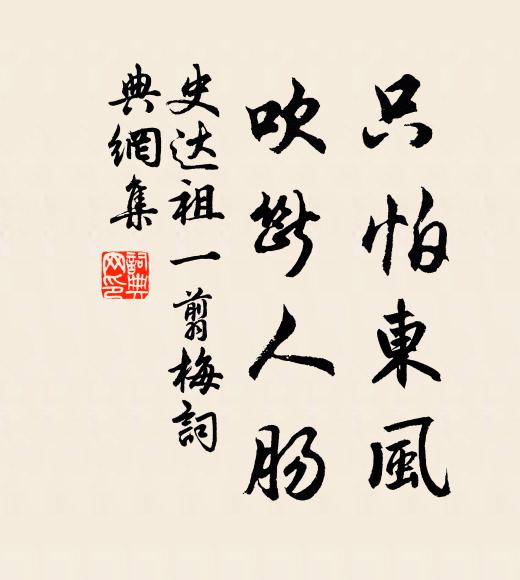 只怕東風
吹斷人肠
史达祖一翦梅詞
典網集
詞典
网印